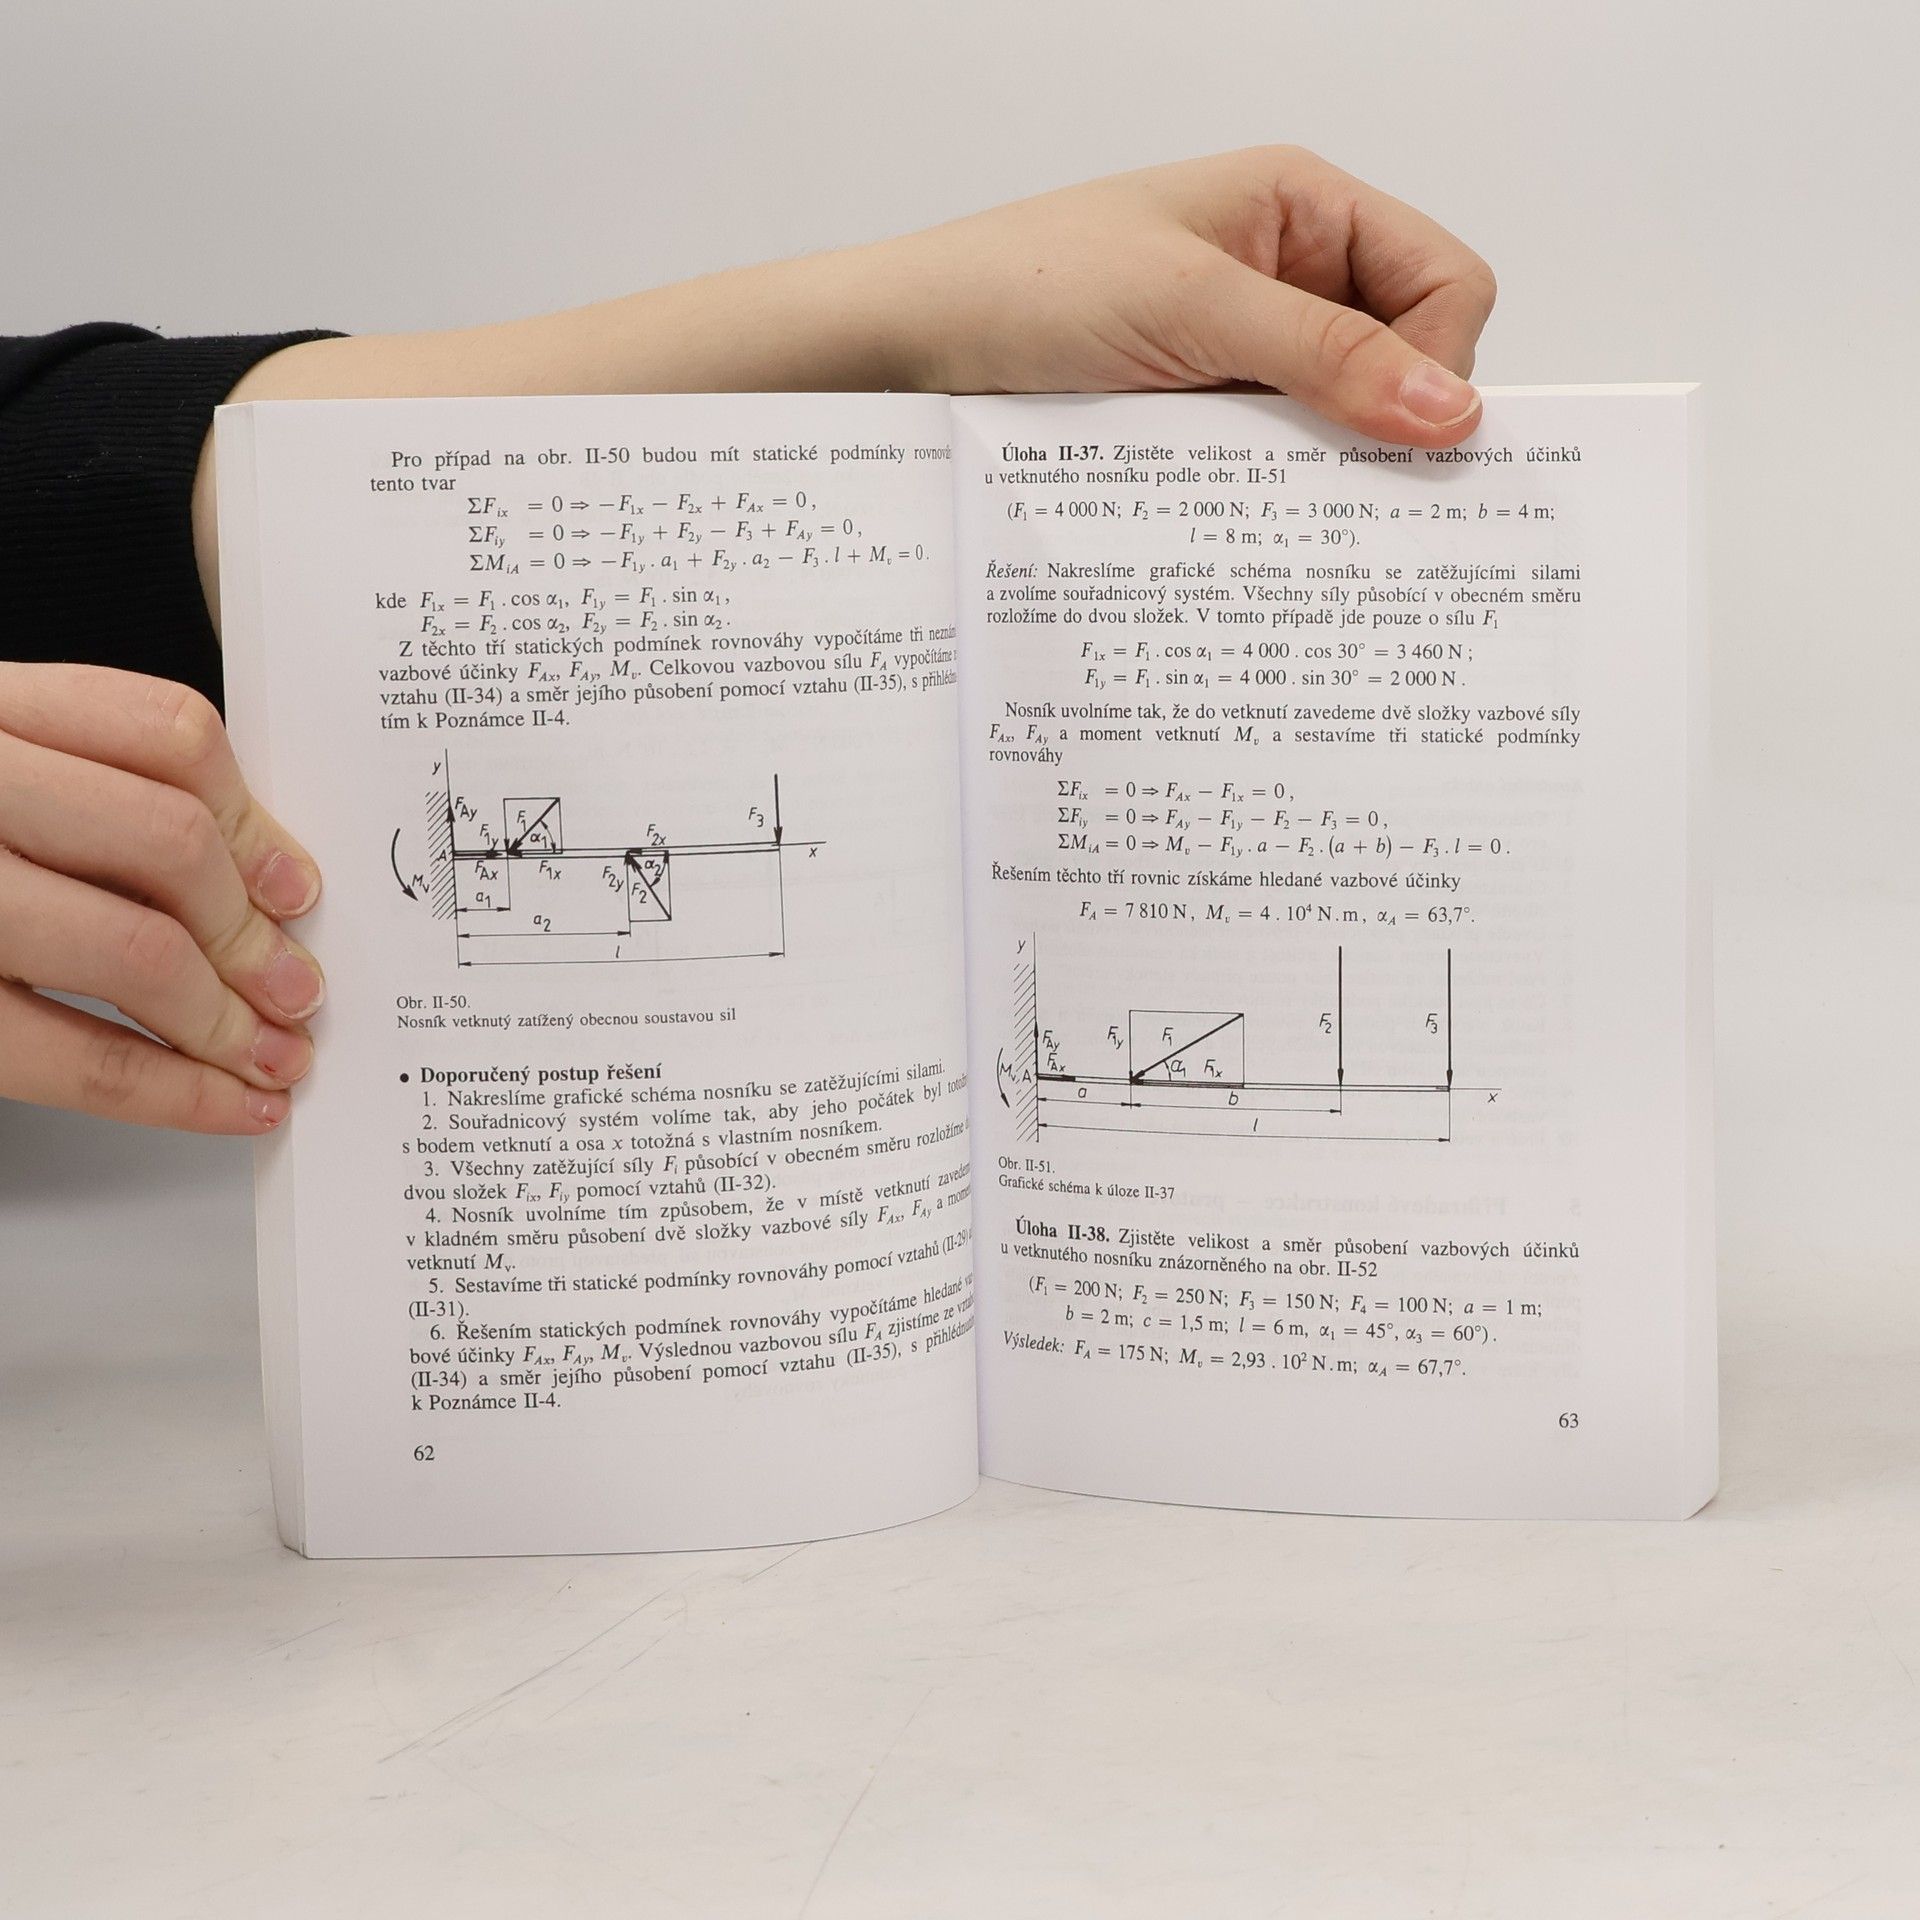 Pro případ na obr. II-50 budou mít statické podmínky
tento tvar
ΣF_ix = 0 ⇒ −F_1x − F_2x + F_Ax = 0,
ΣF_iy = 0 ⇒ −F_1y + F_2y − F_3 + F_Ay = 0,
ΣM_iA = 0 ⇒ −F_1y . a_1 + F_2y . a_2 − F_3 . l + M_v = 0.
kde F_1x = F_1 . cos α_1, F_1y = F_1 . sin α_1,
F_2x = F_2 . cos α_2, F_2y = F_2 . sin α_2.
Z těchto tří statických podmínek rovnováhy vypočítáme tři
vazbové účinky F_Ax, F_Ay, M_v. Celkovou vazbovou sílu F_A vypočítáme
vztahu (II-34) a směr jejího působení pomocí vztahu (II-35), s
tím k Poznámce II-4.
y
F_Ay
F_1y
F_1
α_1
F_2x
F_3
x
A
F_Ax
F_1x
F_2y
α_2
F_2
M_v
a_1
a_2
l
Obr. II-50.
Nosník vetknutý zatížený obecnou soustavou sil
• Doporučený postup řešení
1. Nakreslíme grafické schéma nosníku se zatěžujícími silami.
2. Souřadnicový systém volíme tak, aby jeho počátek byl
s bodem vetknutí a osa x totožná s vlastním nosníkem.
3. Všechny zatěžující síly F_i působící v obecném směru rozložíme
dvou složek F_ix, F_iy pomocí vztahů (II-32).
4. Nosník uvolníme tím způsobem, že v místě vetknutí
v kladném směru působení dvě složky vazbové síly F_Ax, F_Ay a
vetknutí M_v.
5. Sestavíme tři statické podmínky rovnováhy pomocí vztahů (II-29)
(II-31).
6. Řešením statických podmínek rovnováhy vypočítáme hledané
bové účinky F_Ax, F_Ay, M_v. Výslednou vazbovou sílu F_A zjistíme ze
(II-34) a směr jejího působení pomocí vztahu (II-35), s
k Poznámce II-4.
62
Úloha II-37. Zjistěte velikost a směr působení vazbových účinků
u vetknutého nosníku podle obr. II-51
(F_1 = 4 000 N; F_2 = 2 000 N; F_3 = 3 000 N; a = 2 m; b = 4 m;
l = 8 m; α_1 = 30°).
Řešení: Nakreslíme grafické schéma nosníku se zatěžujícími silami
a zvolíme souřadnicový systém. Všechny síly působící v obecném směru
rozložíme do dvou složek. V tomto případě jde pouze o sílu F_1
F_1x = F_1 . cos α_1 = 4 000 . cos 30° = 3 460 N ;
F_1y = F_1 . sin α_1 = 4 000 . sin 30° = 2 000 N .
Nosník uvolníme tak, že do vetknutí zavedeme dvě složky vazbové síly
F_Ax, F_Ay a moment vetknutí M_v a sestavíme tři statické podmínky
rovnováhy
ΣF_ix = 0 ⇒ F_Ax − F_1x = 0,
ΣF_iy = 0 ⇒ F_Ay − F_1y − F_2 − F_3 = 0,
ΣM_iA = 0 ⇒ M_v − F_1y . a − F_2 . (a + b) − F_3 . l = 0 .
Řešením těchto tří rovnic získáme hledané vazbové účinky
F_A = 7 810 N, M_v = 4 . 10⁴ N.m, α_A = 63,7°.
y
F_Ay
F_Ax
F_1y
F_1
α_1
F_1x
F_2
F_3
M_v
A
x
a
b
l
Obr. II-51.
Grafické schéma k úloze II-37
Úloha II-38. Zjistěte velikost a směr působení vazbových účinků
u vetknutého nosníku znázorněného na obr. II-52
(F_1 = 200 N; F_2 = 250 N; F_3 = 150 N; F_4 = 100 N; a = 1 m;
b = 2 m; c = 1,5 m; l = 6 m, α_1 = 45°, α_3 = 60°).
Výsledek: F_A = 175 N; M_v = 2,93 . 10² N.m; α_A = 67,7°.
63